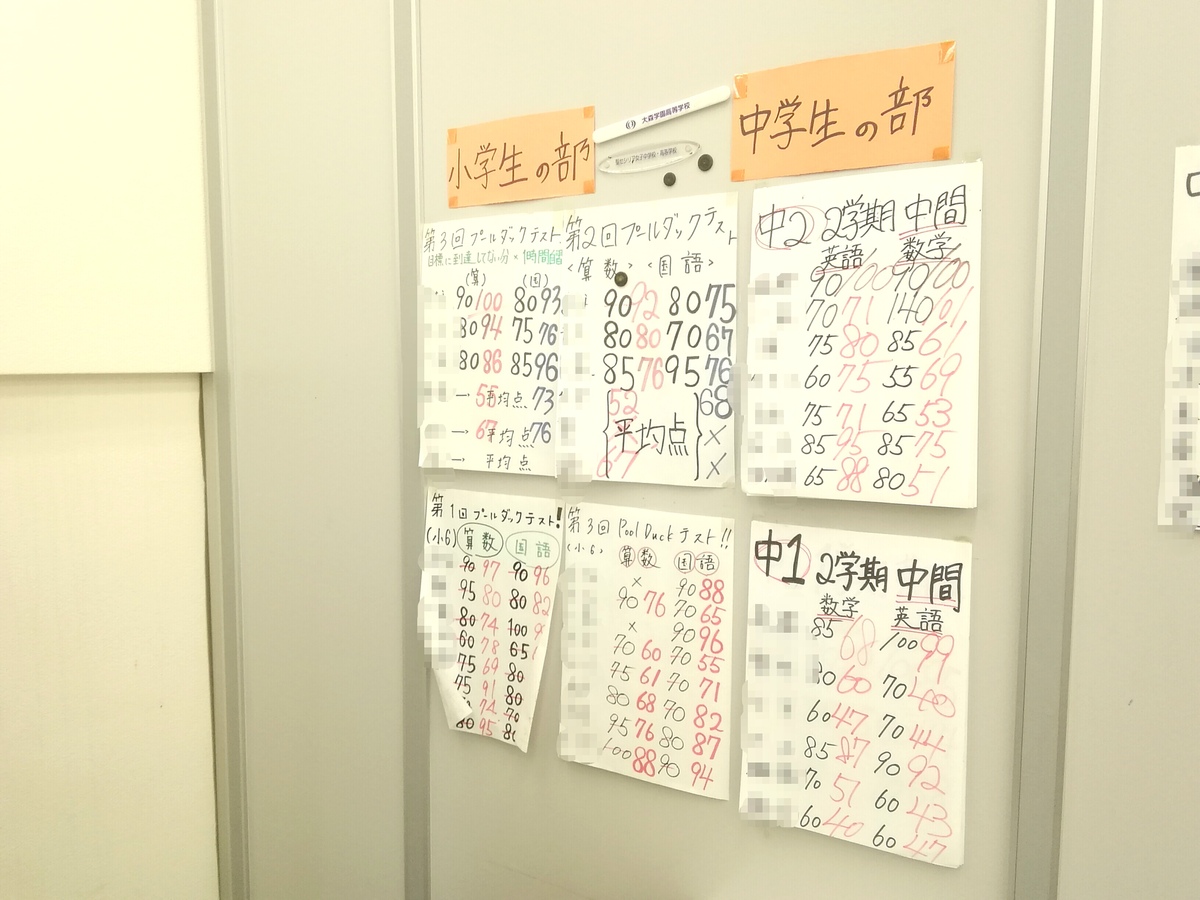 小学生の部
大森学園高等学校
中学生の部
第3回プールダックテスト
目標に到達してない分×1時間
(算) (国)
90 100 80 93
80 94 75 76
80 86 85 96
→ 55 平均点 73
→ 67 平均点 76
→ 平均点
第2回プールダックテスト
<算数> <国語>
90 92 80 75
80 80 70 67
85 76 95 76
52 平均点 68
67 ×
×
中2 2学期 中間
英語 数学
90 100 90 100
70 71 140
75 80 85 61
60 75 55 69
75 71 65 53
85 95 85 75
65 88 80 51
第1回プールダックテスト!
(小6) 算数 国語
90 97 90 96
95 80 80 82
80 74 100
60 78 65
75 69 80
75 91 80
74 70
80 95
第3回 Pool Duck テスト!!
(小6) 算数 国語
× 90 88
90 76 70 65
× 90 96
70 60 70 55
75 61 70 71
80 68 70 82
95 76 80 87
100 88 90 94
中1 2学期 中間
数学 英語
85 68 100 99
60 70 40
60 47 70 44
85 87 90 92
70 51 60 43
60 40 60 47